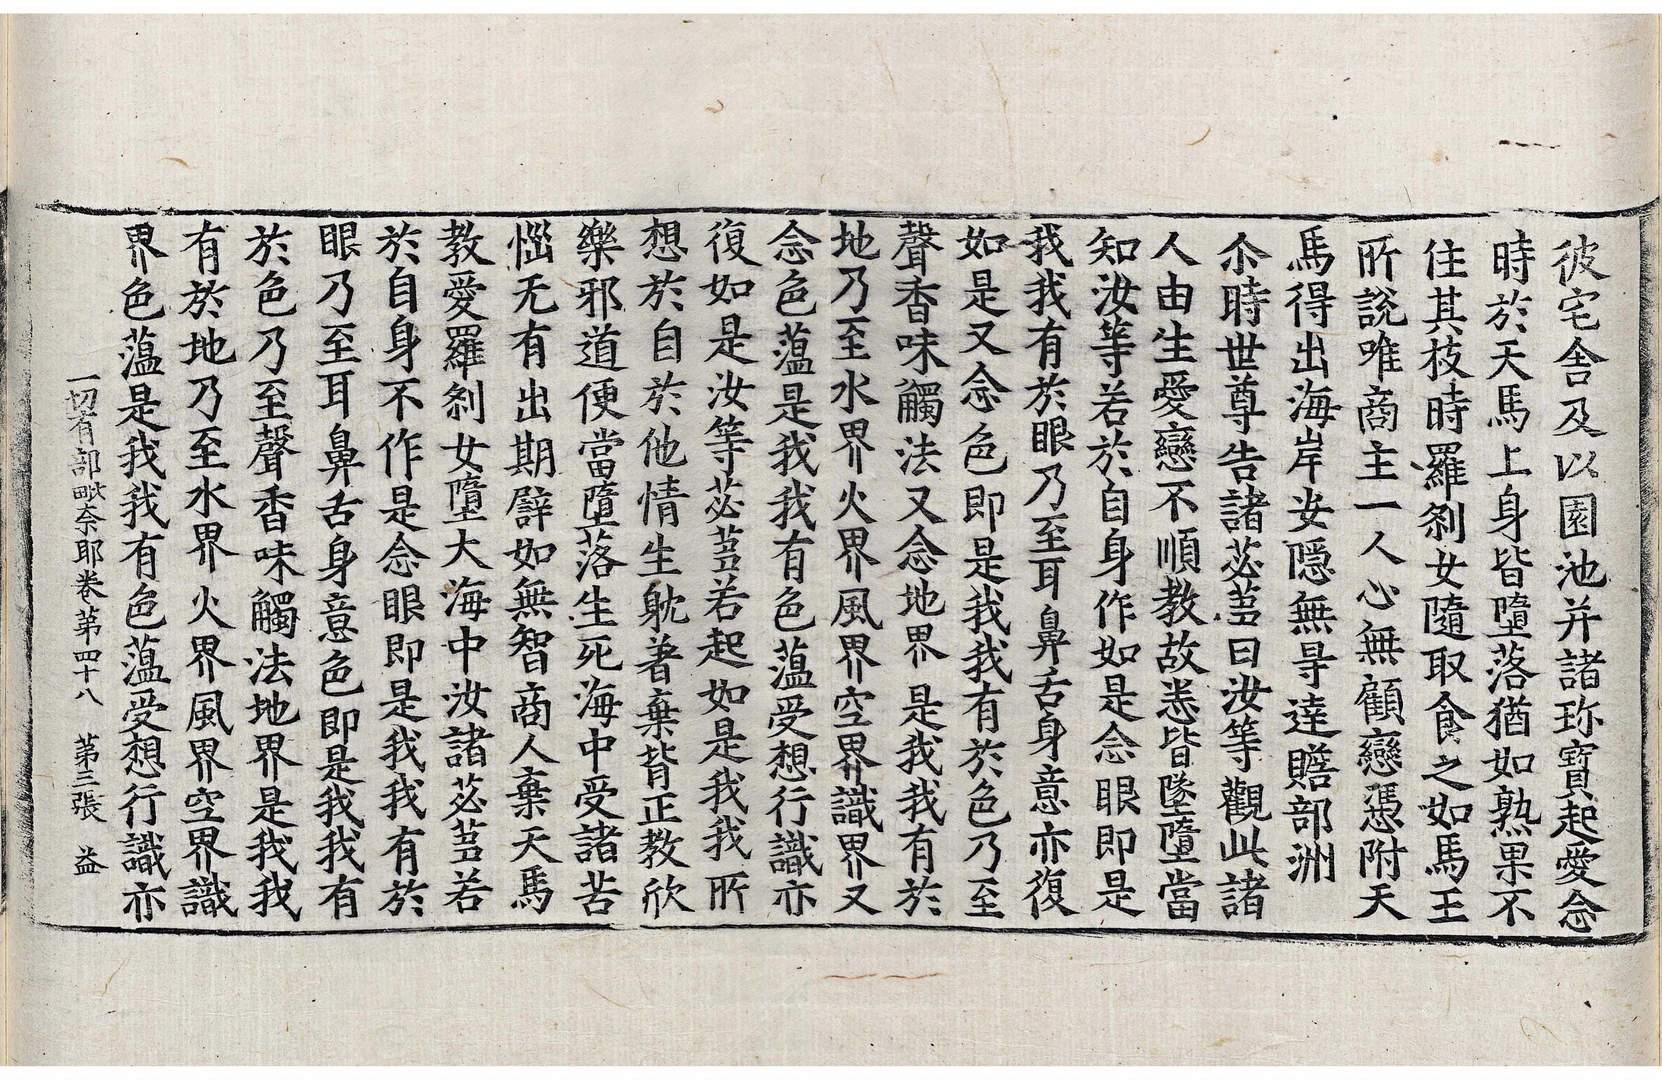 彼宅舍及以園池并諸珎寶起愛念
時於天馬上身皆墮落猶如熟果不
住其枝時羅剎女隨取食之如馬王
所說唯商主一人心無顧戀憑附天
馬得出海岸安隱無㝵達贍部洲
尒時世尊告諸苾芻曰汝等觀此諸
人由生愛戀不順教故悉皆墜墮當
知汝等若於自身作如是念眼即是
我我有於眼乃至耳鼻舌身意亦復
如是又念色即是我我有於色乃至
聲香味觸法又念地界是我我有於
地乃至水界火界風界空界識界又
念色薀是我我有色薀受想行識亦
復如是汝等苾芻若起如是我我所
想於自於他情生躭著棄背正教欣
樂邪道便當墮落生死海中受諸苦
惱无有出期譬如無智商人棄天馬
教愛羅剎女墮大海中汝諸苾芻若
於自身不作是念眼即是我我有於
眼乃至耳鼻舌身意色即是我我有
於色乃至聲香味觸法地界是我我
有於地乃至水界火界風界空界識
界色薀是我我有色薀受想行識亦
一切有部毗奈耶卷第四十八 第三張 益